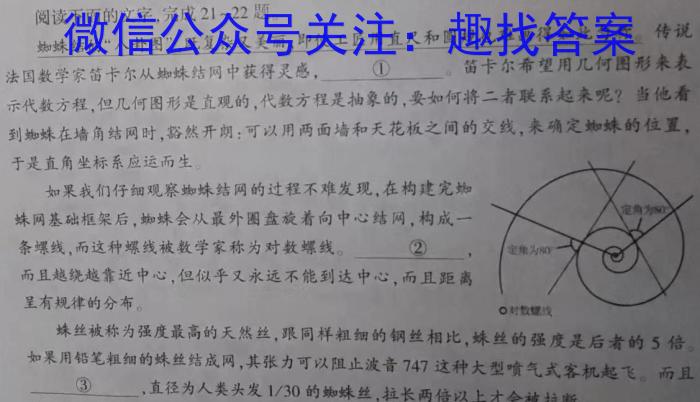 阅读下面的文字,完成21~22题。
微信公众号关注：趣找答案
蜘蛛结 传说
法国数学家笛卡尔从蜘蛛结网中获得灵感, ① 。笛卡尔希望用几何图形来表
示代数方程,但几何图形是直观的,代数方程是抽象的,要如何将二者联系起来呢？当他看
到蜘蛛在墙角结网时,豁然开朗:可以用两面墙和天花板之间的交线,来确定蜘蛛的位置,
于是直角坐标系应运而生。
如果我们仔细观察蜘蛛结网的过程不难发现,在构建完蜘
蛛网基础框架后,蜘蛛会从最外圈盘旋着向中心结网,构成一
条螺线,而这种螺线被数学家称为对数螺线。 ② ,
而且越绕越靠近中心,但似乎又永远不能到达中心,而且距离
呈有规律的分布。
定角为80°
定角为80°
对数螺线
蛛丝被称为强度最高的天然丝,跟同样粗细的钢丝相比,蛛丝的强度是后者的5倍。
如果用铅笔粗细的蛛丝结成网,其张力可以阻止波音747这种大型喷气式客机起飞。而且
③ ,直径为人类头发1/30的蜘蛛丝,拉长两倍以上才会被拉断